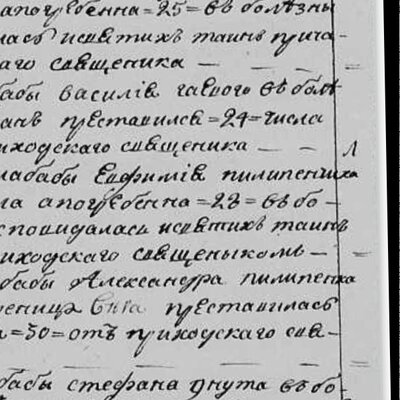 апогребенна = 25 = въ болѣзны
лась исвятихъ таинъ прича-
аго священика —
бабы василія гаевого въ болѣ
анъ преставился = 24 = числа
иходскаго священика — — Л
лабабы Евфимія пилипенчика
ла апогребенна = 28 = въ бо-
сповидалася исвятихъ таинъ
иходскаго священыкомъ —
бабы Александра пилипенка
преставилась
= 30 = отъ приходскаго свя-
бабы стефана днута въ бо-